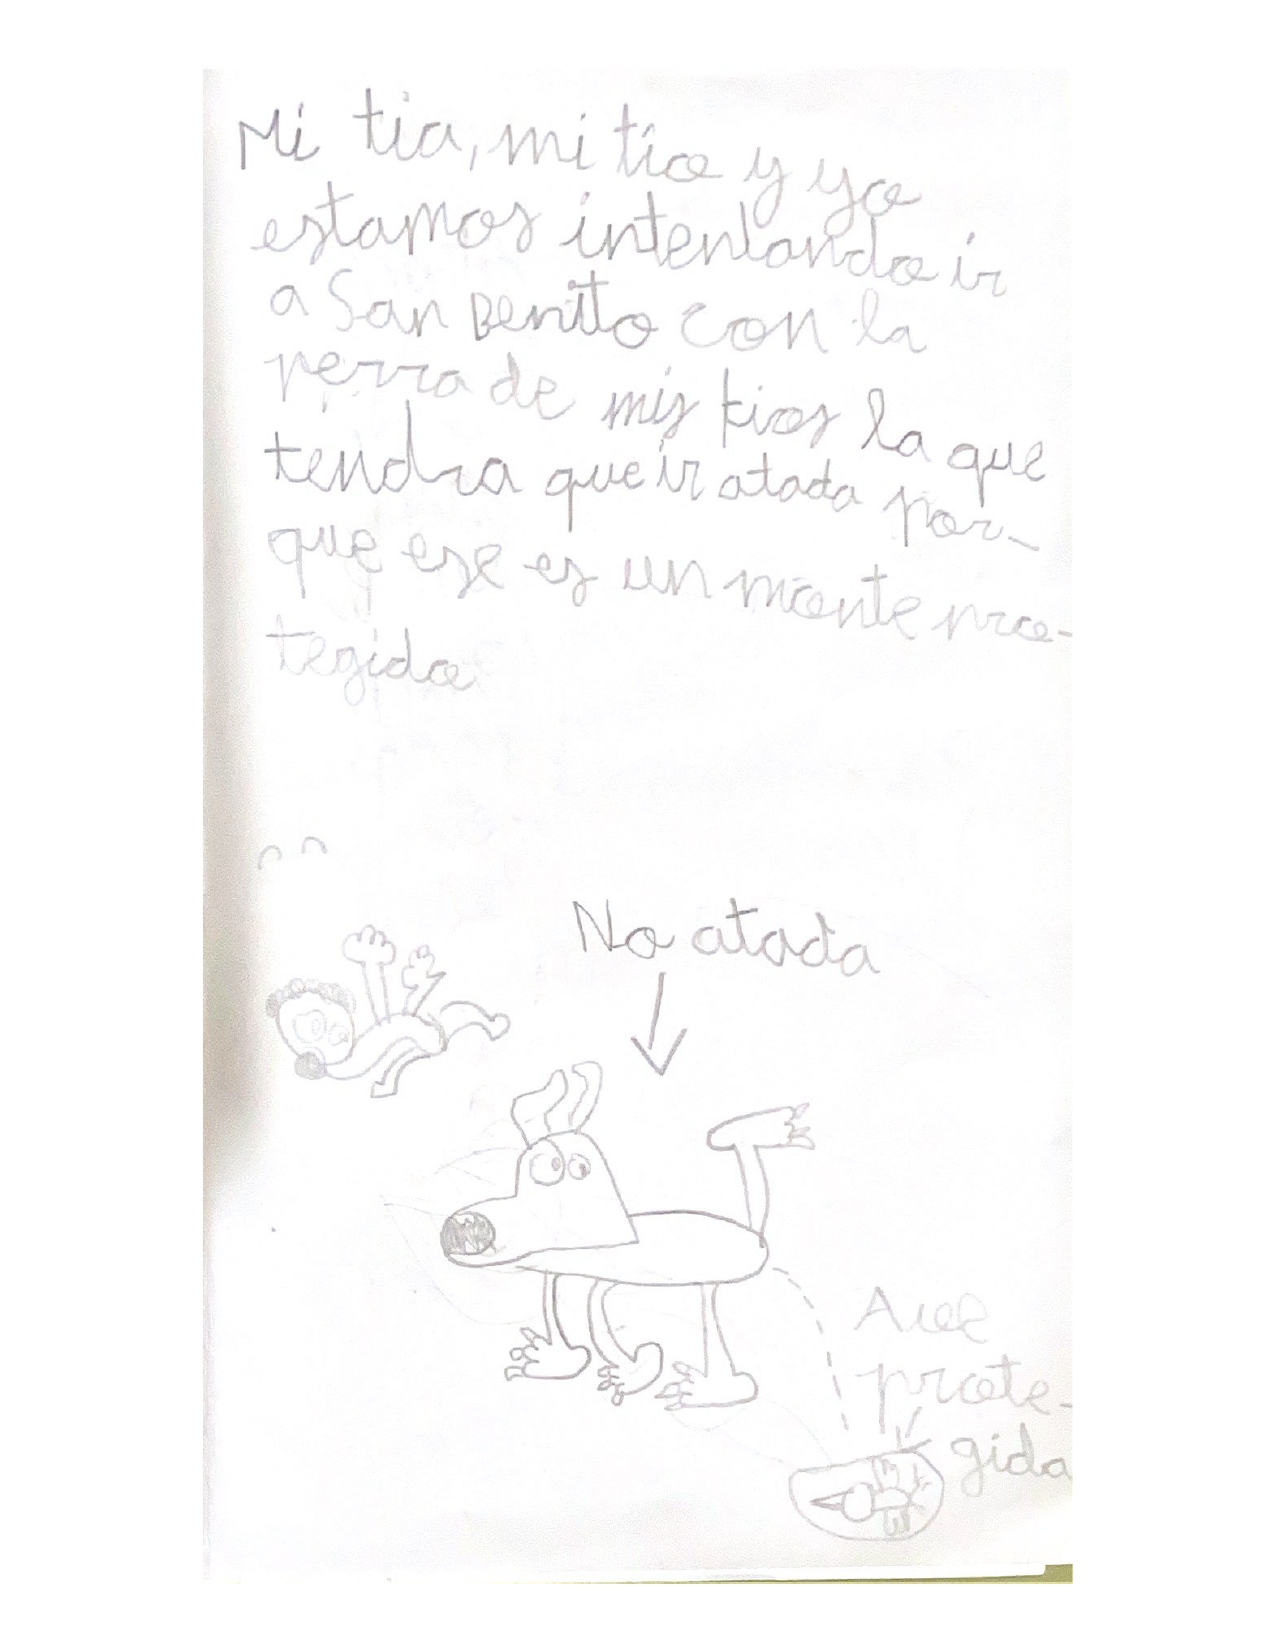 Mi tia, mi tío y yo
estamos intentando ir
a San Benito con la
perra de mis tios la que
tendra que ir atada por-
que ese es un monte pro-
tegido
No atada
Ave
prote-
gida